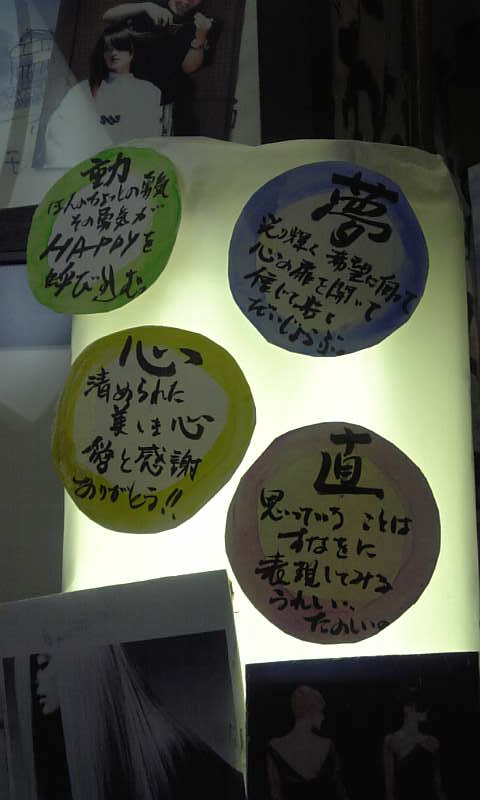 動
ほんのちょっとの勇気
その勇気が
HAPPYを
呼び込む。
夢
光り輝く希望に向って
心の扉を開いて
信じて歩く
だいじょうぶ。
心
清められた
美しき心
愛と感謝
ありがとう!!
直
思っていう ことは
すなをに
表現してみる
うれしい、
たのしい。